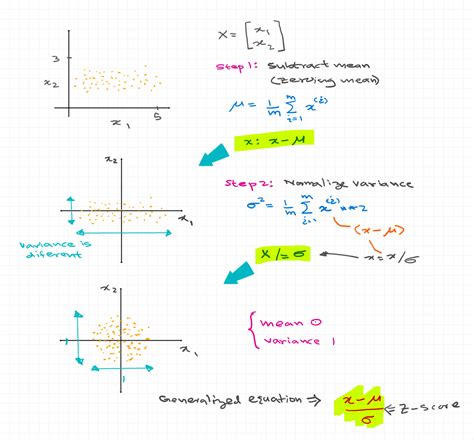 X = [x₁
x₂]
Step 1: Subtract mean
(zeroing mean)
3
x₂
x₁
5
μ = 1/m Σ_{i=1}^{m} x^(i)
x: x-μ
x₂
x₁
variance is
diferent
Step 2: Nomalize variance
σ² = 1/m Σ_{i=1}^{m} x^(i) **2
(x-μ)
X /= σ
x = x/σ
x₂
1
x₁
1
mean 0
variance 1
Generalized equation ⇒ x-μ/σ ⇐ Z-score